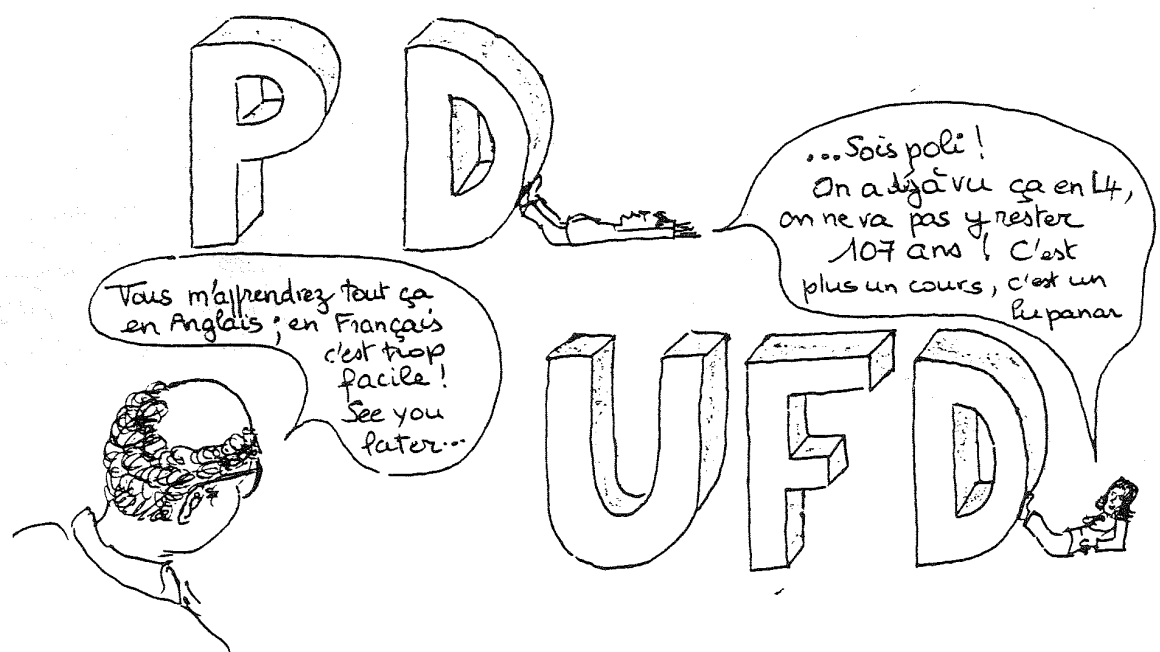 PD
...Sois poli !
On a déjà vu ça en L4,
on ne va pas y rester
107 ans ! C'est
plus un cours, c'est un
lupanar
Vous m'apprendrez tout ça
en Anglais ; en Français
c'est trop
facile !
See you
later...
UFD